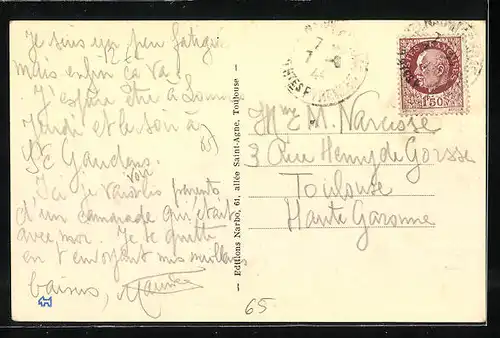 Je suis un peu fatigué
mais enfin ça va.
J'espère être à
Jeudi et le soir à
St Gaudens.
Ici je vais voir les parents
d'un camarade qui était
avec moi. Je te quitte
en t'envoyant mes meilleurs
baisers, Maurice
65
— Editions Narbo, 61, allée Saint-Agne, Toulouse —
7
44
POSTES FRANÇAISES
1F50
Mme M. Narcisse
3 Rue Henry de Gorsse
Toulouse
Haute Garonne
65